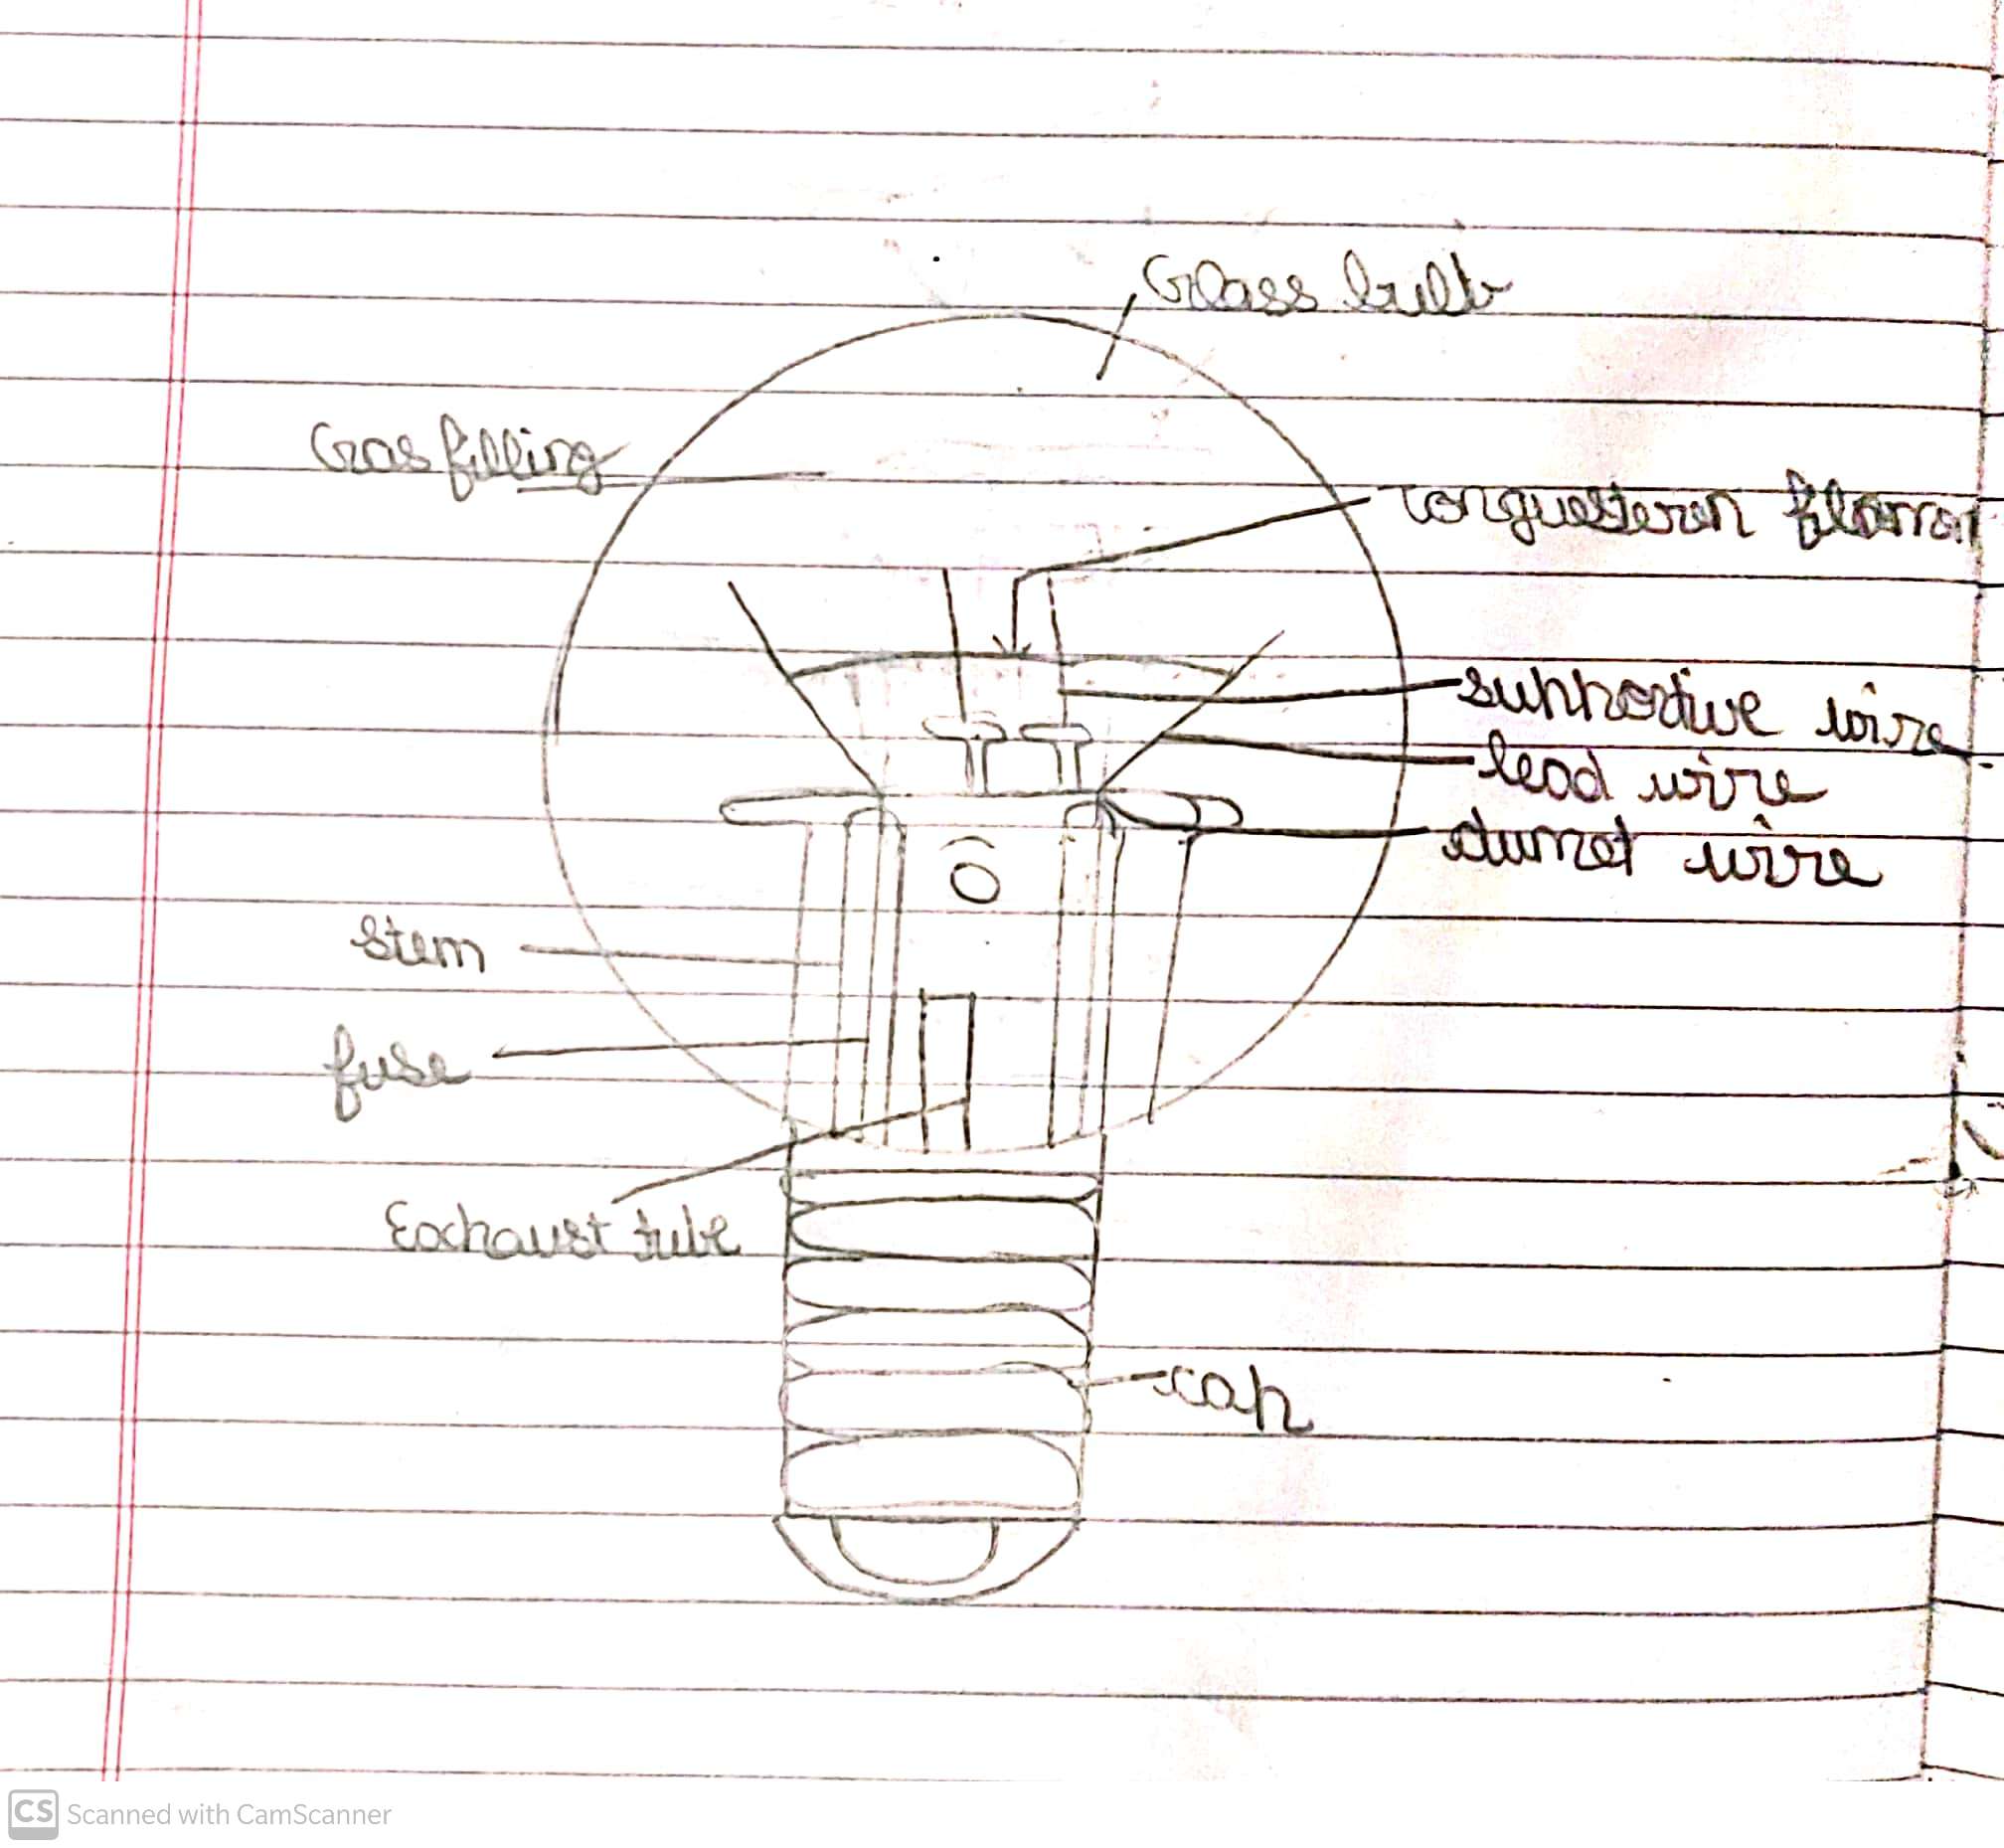 Glass bulb
Gas filling
Tonguesteren filamon
supportive wire
lead wire
dumet wire
stem
fuse
Exchaust tube
cap
CS Scanned with CamScanner